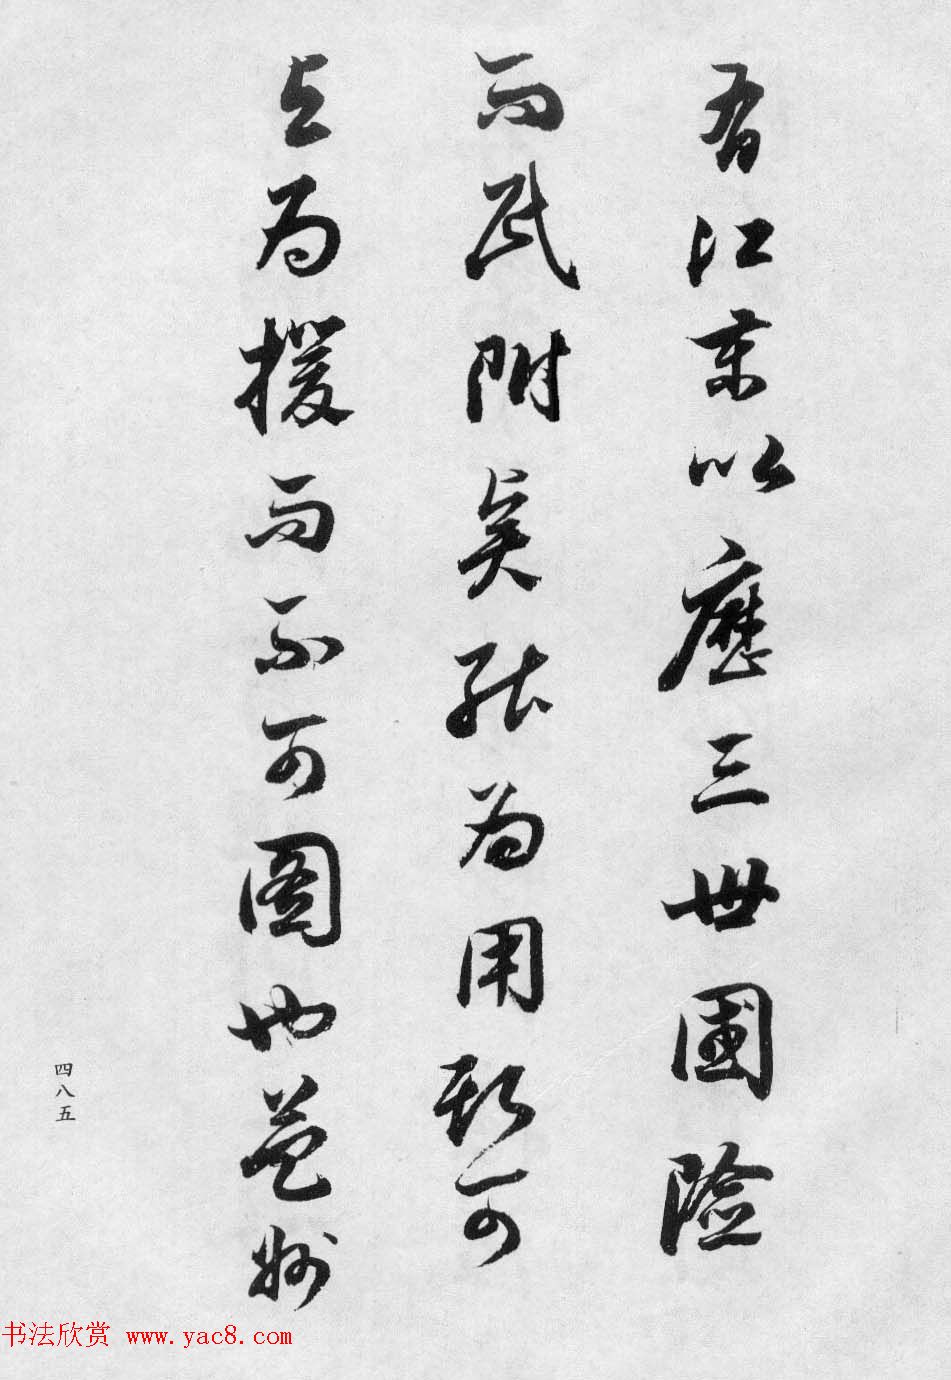 有江東以歷三世國險
而民附矣能為用斯可
与為援而不可圖也益州
四八五
书法欣赏 www.yac8.com